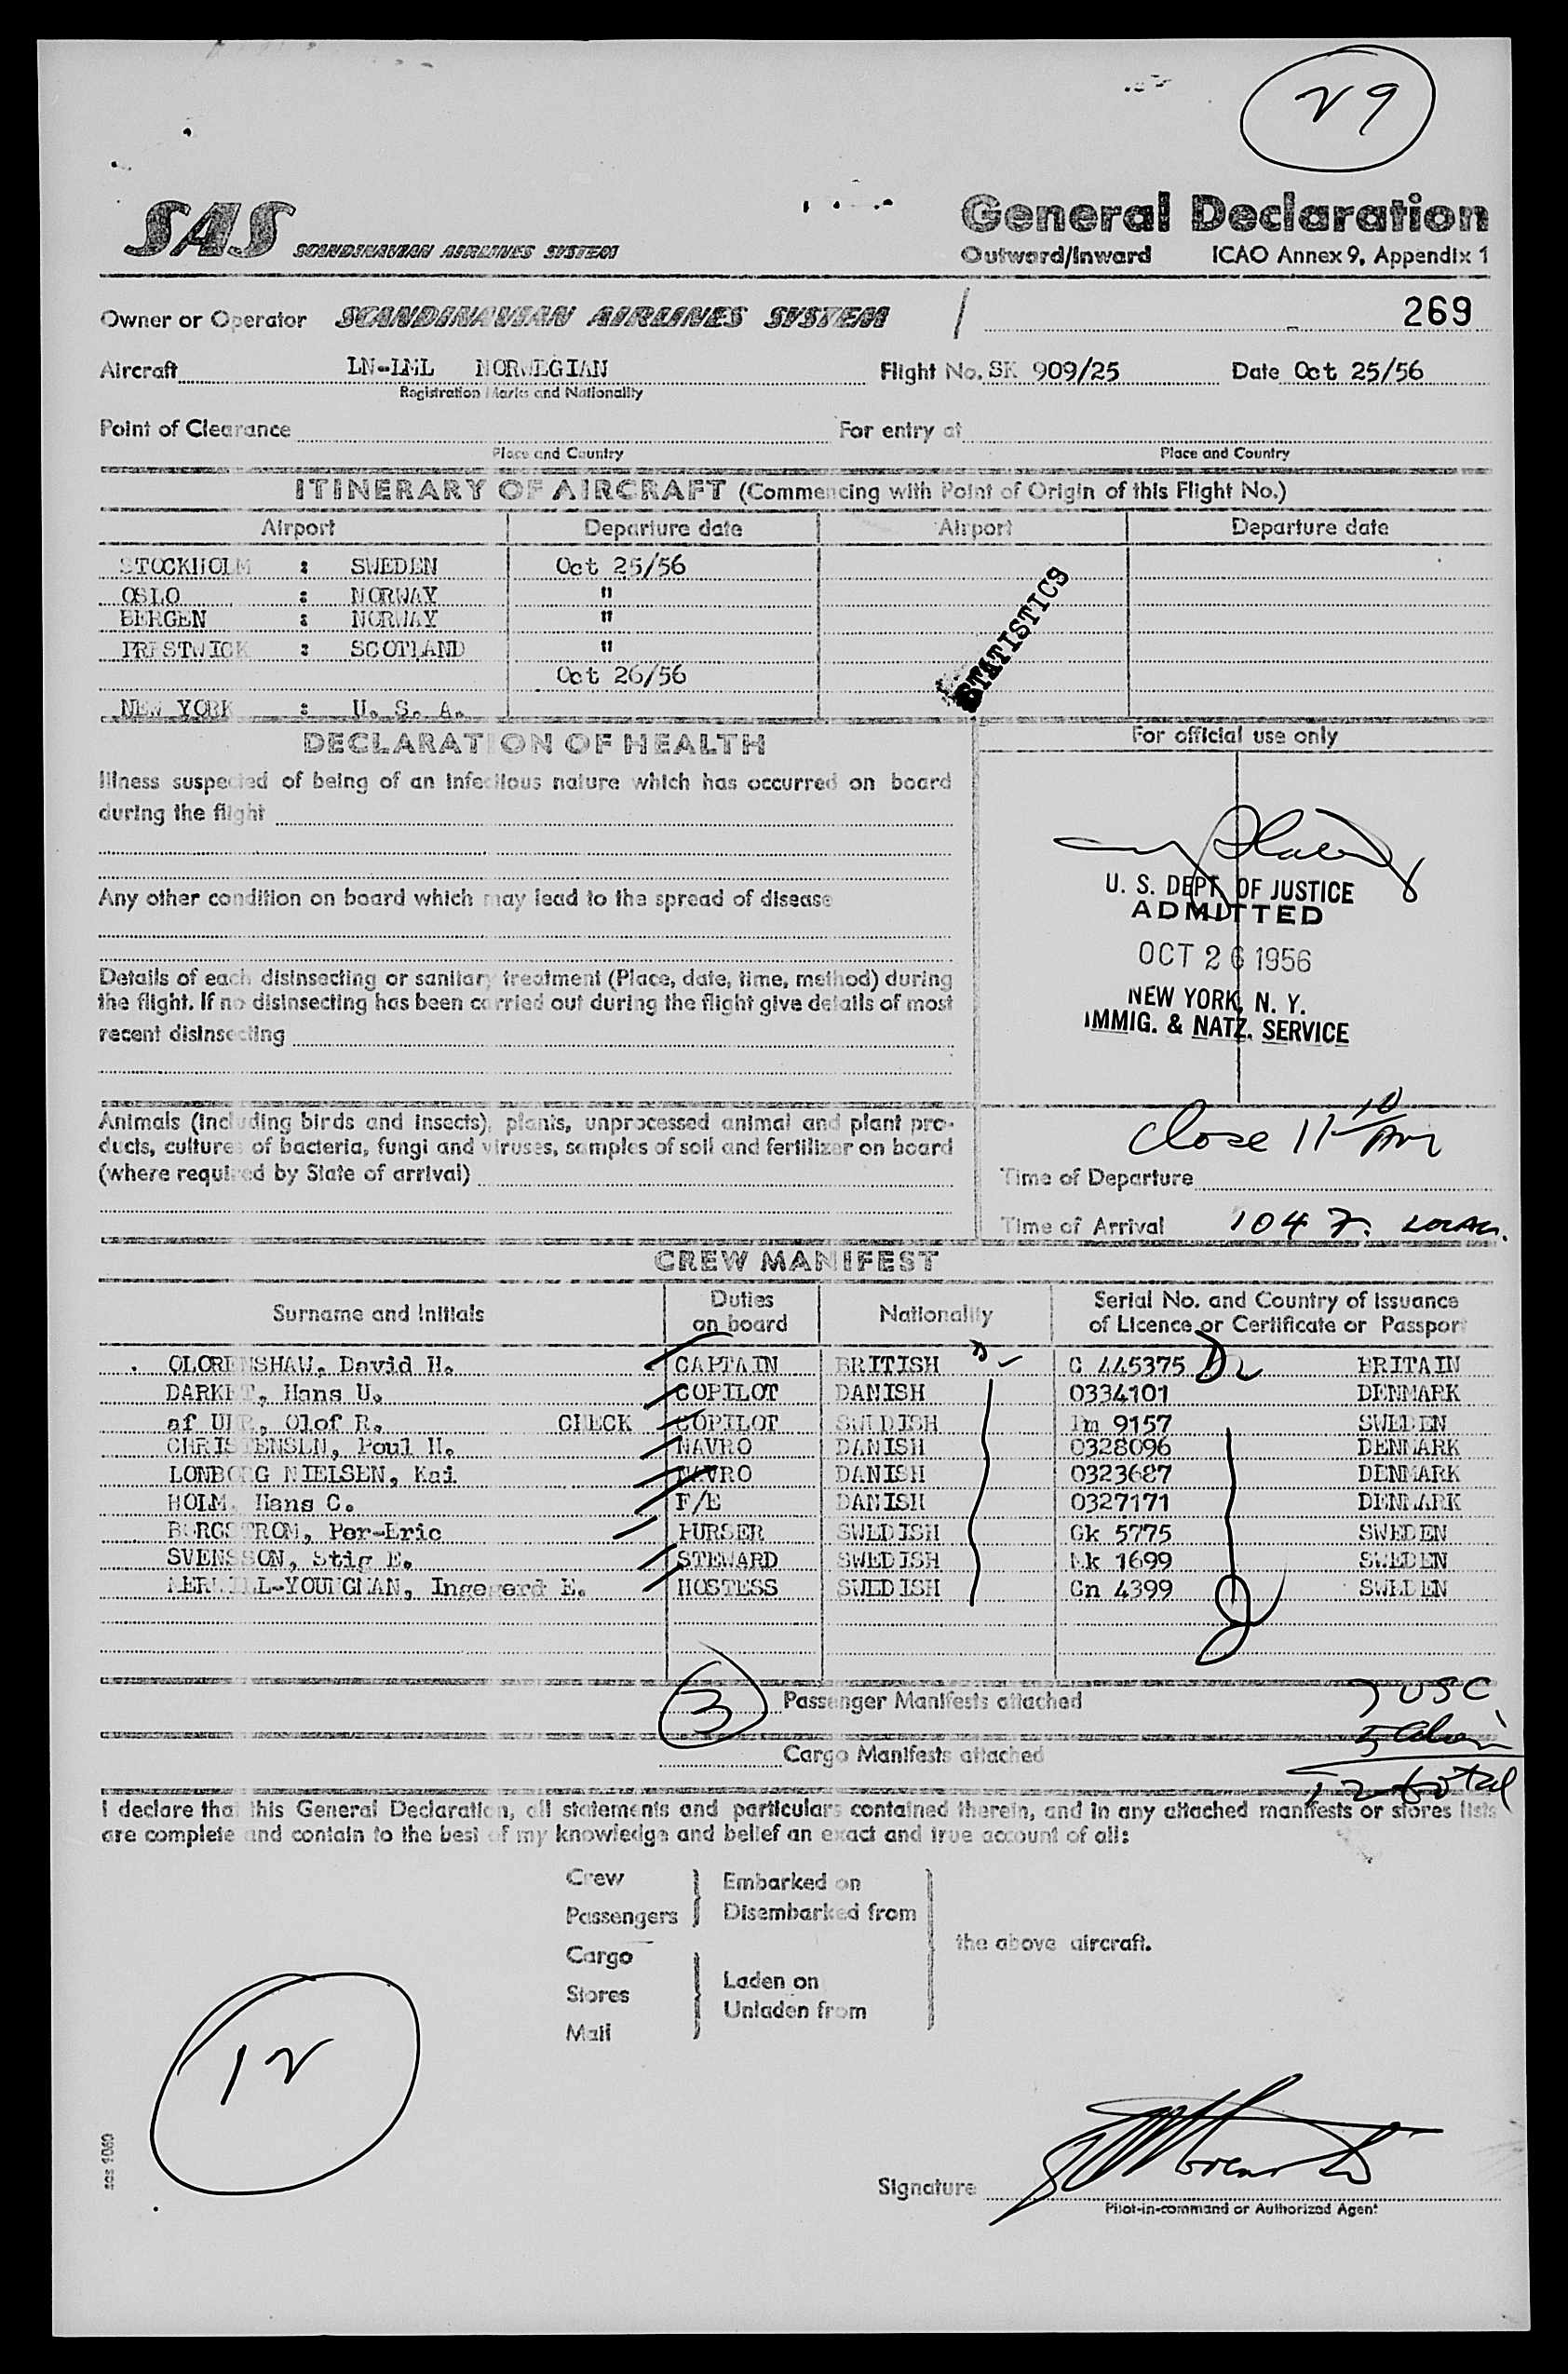 29
SAS SCANDINAVIAN AIRLINES SYSTEM
General Declaration
Outward/Inward ICAO Annex 9, Appendix 1
Owner or Operator SCANDINAVIAN AIRLINES SYSTEM 269
Aircraft NORWEGIAN Flight No. SK 909/25 Date Oct 25/56
Registration Marks and Nationality
Point of Clearance For entry at
Place and Country Place and Country
ITINERARY OF AIRCRAFT (Commencing with Point of Origin of this Flight No.)
Airport Departure date Airport Departure date
STOCKHOLM : SWEDEN Oct 25/56
OSLO : NORWAY "
BERGEN : NORWAY "
PRESTWICK : SCOTLAND "
Oct 26/56
NEW YORK : U. S. A.
STATISTICS
DECLARATION OF HEALTH
For official use only
Illness suspected of being of an infectious nature which has occurred on board
during the flight
Any other condition on board which may lead to the spread of disease
U. S. DEPT. OF JUSTICE
ADMITTED
OCT 26 1956
NEW YORK, N. Y.
IMMIG. & NATZ. SERVICE
Details of each disinsecting or sanitary treatment (Place, date, time, method) during
the flight. If no disinsecting has been carried out during the flight give details of most
recent disinsecting
Animals (including birds and insects), plants, unprocessed animal and plant pro-
ducts, cultures of bacteria, fungi and viruses, samples of soil and fertilizer on board
(where required by State of arrival)
Close 11 10 AM
Time of Departure
Time of Arrival 1047. LOCAL.
CREW MANIFEST
Surname and Initials Duties on board Nationality Serial No. and Country of Issuance
of Licence or Certificate or Passport
OLORENSHAW, David H. CAPTAIN BRITISH C 445375 BRITAIN
Hans U. COPILOT DANISH 0334101 DENMARK
af Olof R. CHECK COPILOT SWEDISH 9157 SWEDEN
CHRISTENSEN, Poul H. NAVRO DANISH 0328096 DENMARK
LONBORG NIELSEN, Kai NAVRO DANISH 0323687 DENMARK
HOLM, Hans C. F/E DANISH 0327171 DENMARK
BORGSTROM, Per-Eric PURSER SWEDISH Gk 5775 SWEDEN
SVENSSON, Stig E. STEWARD SWEDISH 1699 SWEDEN
Ingegerd E. HOSTESS SWEDISH Gn 4399 SWEDEN
3 Passenger Manifests attached
7 USC
5 alien
Cargo Manifests attached
12 total
I declare that this General Declaration, all statements and particulars contained therein, and in any attached manifests or stores lists
are complete and contain to the best of my knowledge and belief an exact and true account of all:
Crew Embarked on
Passengers Disembarked from
the above aircraft.
Cargo
Laden on
Stores
Unladen from
Mail
12
sas 1060
Signature
Pilot-in-command or Authorized Agent